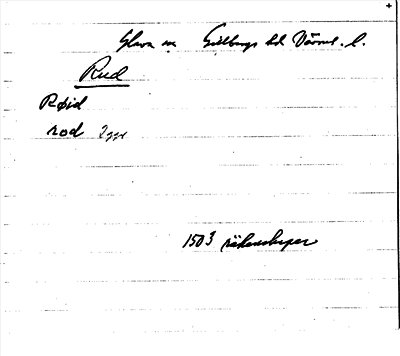 Glava sn Gillbergs hd Värml. l.
Rud
Røid
rod 2ggr
1503 räkenskaper